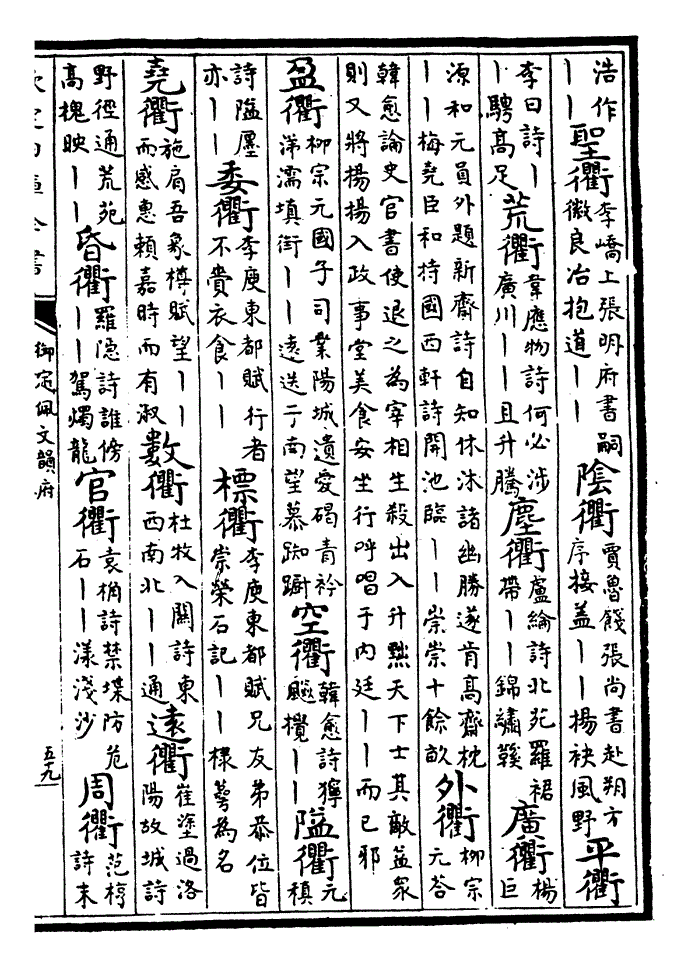 浩作丨丨聖衢李嶠上張明府書嗣徽良冶抱道丨丨陰衢賈魯餞張尚書赴朔方序接蓋丨丨揚袂風野平衢
李白詩丨丨騁高足荒衢韋應物詩何必涉廣川丨丨且升騰塵衢盧綸詩北苑羅裙帶丨丨錦繡鞵廣衢楊巨
源和元員外題新齋詩自知休沐諸幽勝遂肯高齋枕丨丨梅堯臣和持國西軒詩開池臨丨丨崇崇十餘畝外衢柳宗元荅
韓愈論史官書使退之為宰相生殺出入升黜天下士其敵益眾則又將揚揚入政事堂美食安坐行呼唱于內廷丨丨而已邪
盈衢柳宗元國子司業陽城遺愛碣青衿涕濡填街丨丨遠送于南望慕踟躕空衢韓愈詩獰飈攪丨丨隘衢元稹
詩隘廛亦丨丨委衢李庾東都賦行者不賚衣食丨丨標衢李庾東都賦兄友弟恭位皆崇榮石記丨丨樣蕚為名
堯衢施肩吾象樽賦望丨丨而感惠賴嘉時而有淑數衢杜牧入關詩東西南北丨丨通遠衢崔塗過洛陽故城詩
野徑通荒苑高槐映丨丨昏衢羅隱詩誰傍丨丨駕燭龍官衢袁桷詩禁堞防危石丨丨漾淺沙周衢范梈詩未
欽定四庫全書
御定佩文韻府
五十九